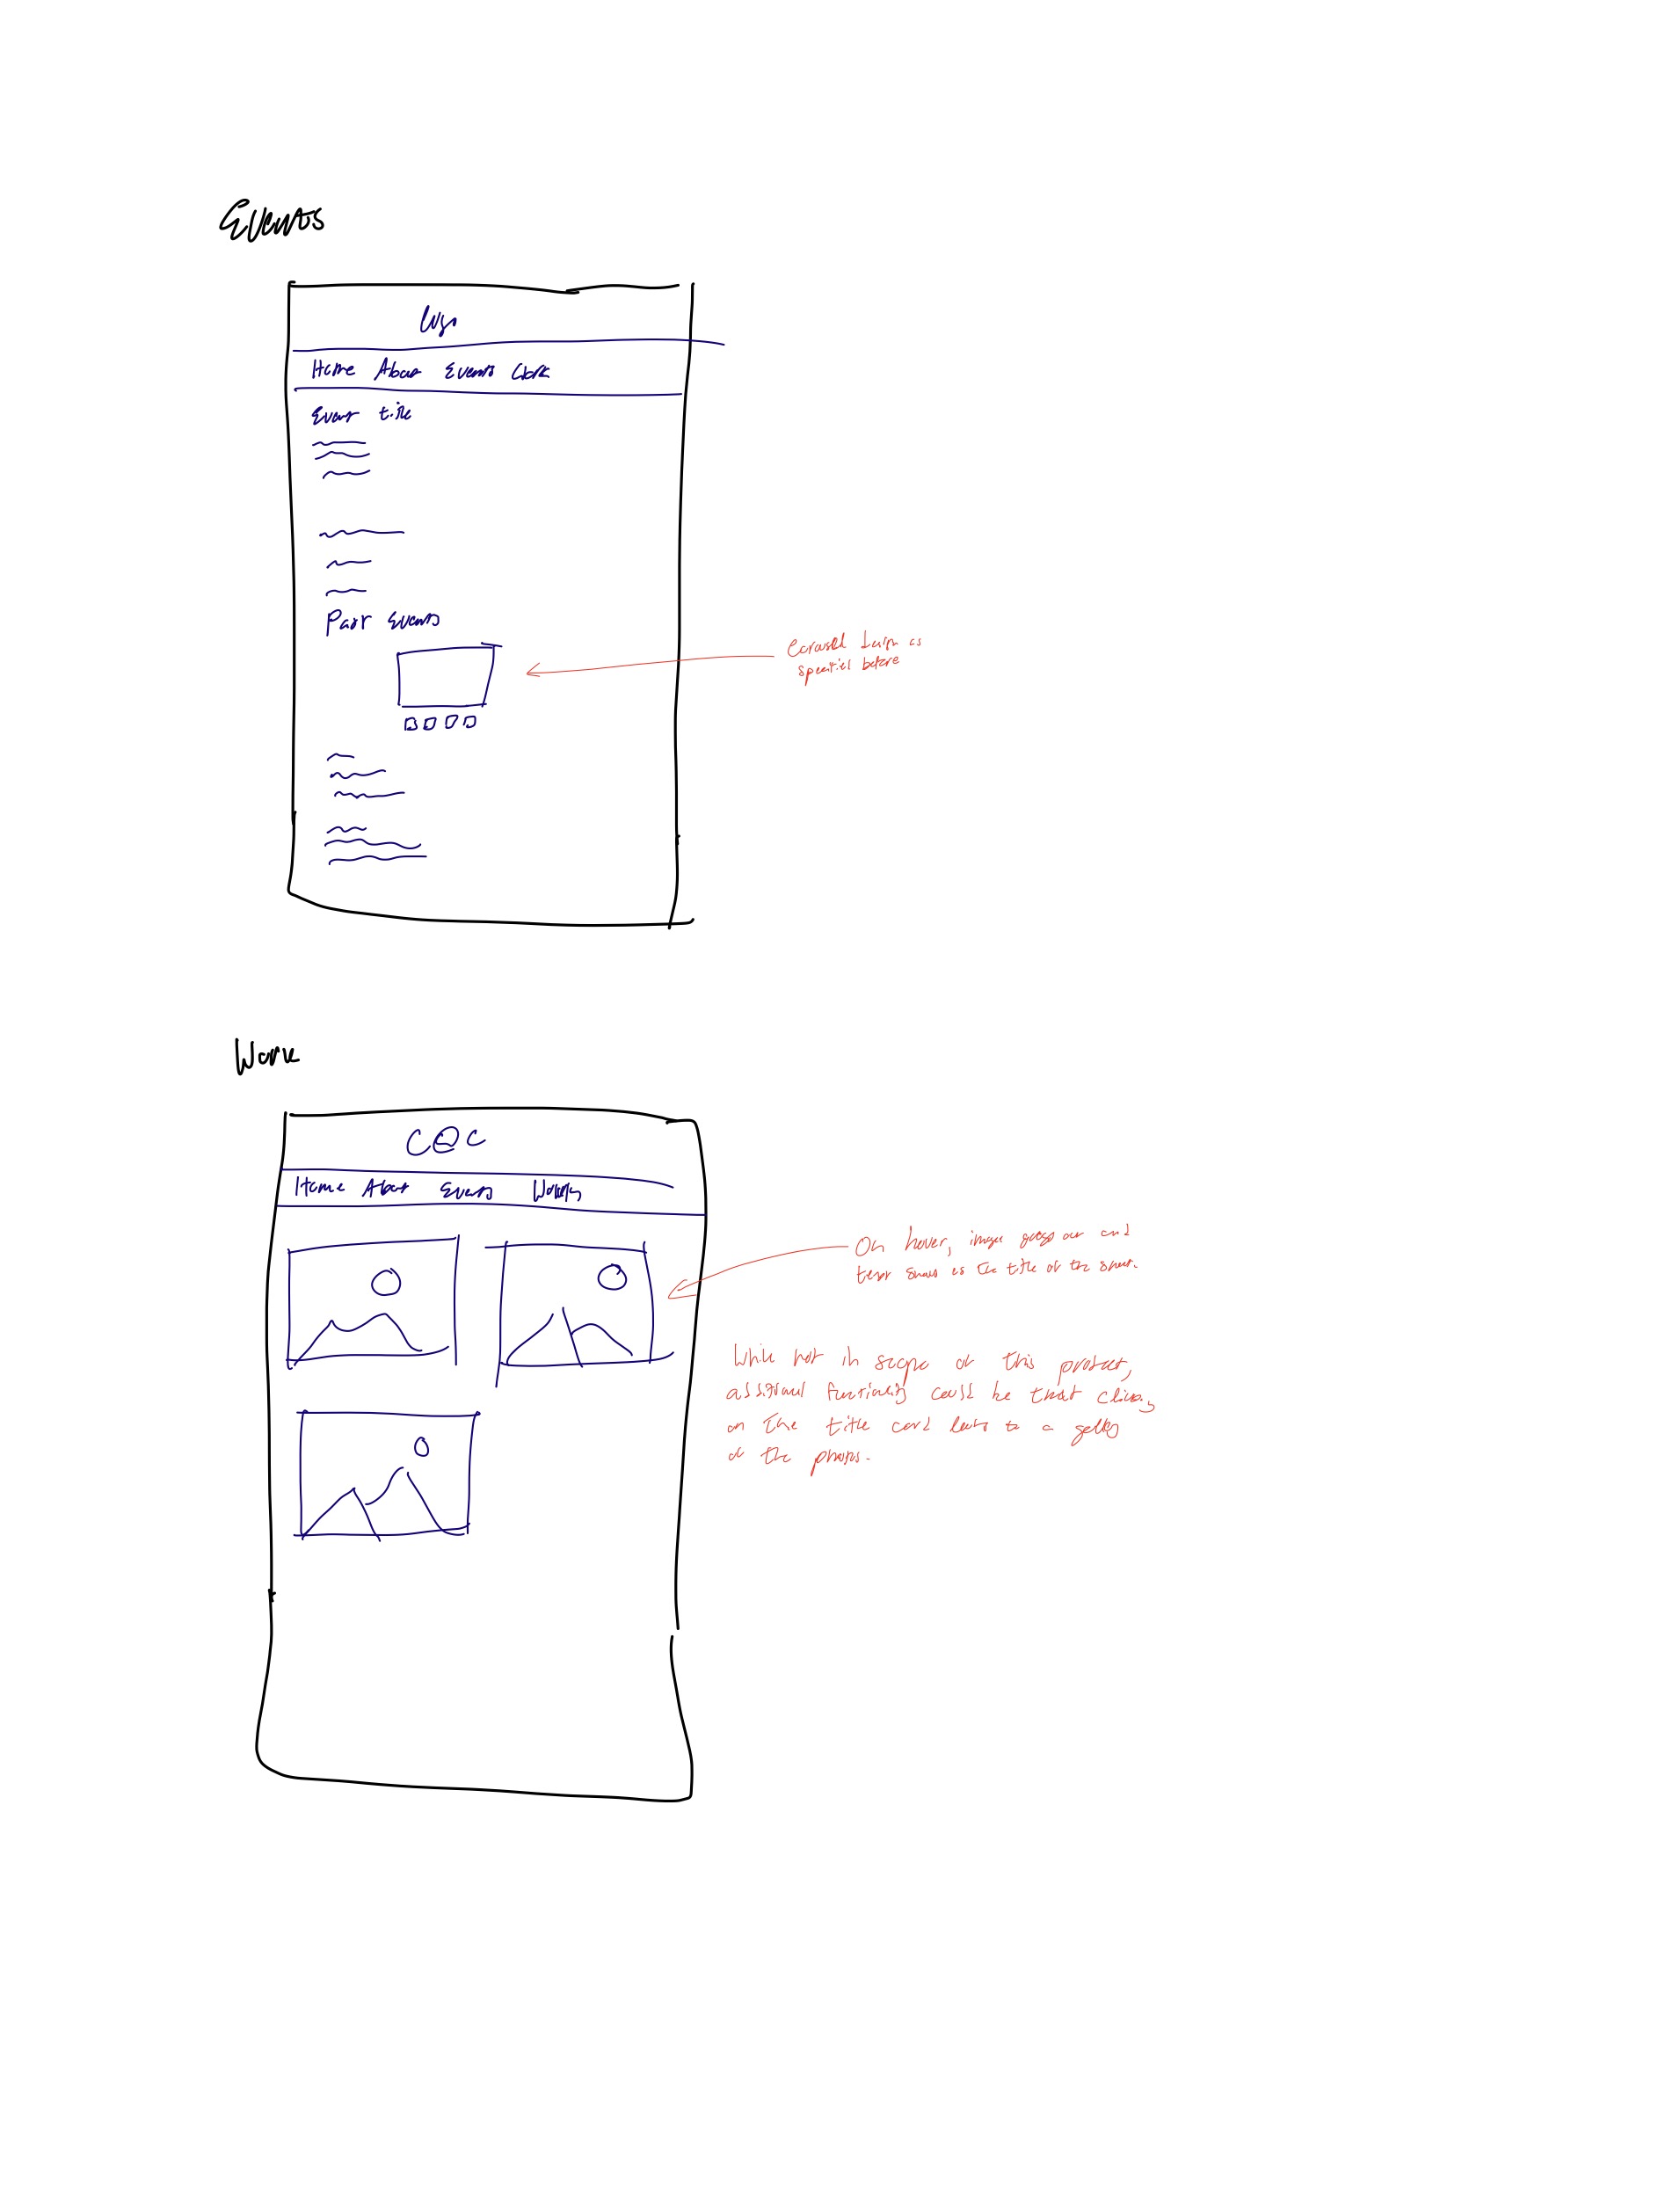 Events
Logo
Home About Events Work
Event title
Past Events
Carousel design as
specified before
Work
COC
Home About Events Work
On hover, image greys out and
text shows as the title of the shoot.
While not in scope of this project,
additional functionality could be that clicking
on the title card leads to a gallery
of the photos.